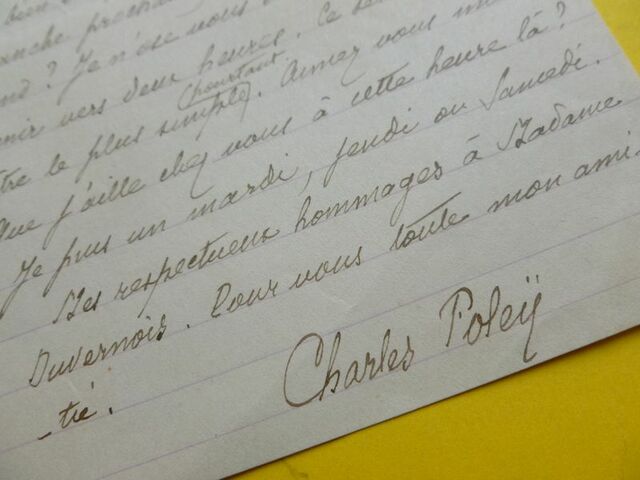 bien
anche prochain
nd ? Je n'ose vous
enir vers deux heures. Ce se
pourtant
tre le plus simple. Aimez vous mi
que j'aille chez vous à cette heure là ?
Je puis un mardi, jeudi ou Samedi.
Mes respectueux hommages à Madame
Duvernois. Pour vous toute mon ami
-tié.
Charles Foleÿ